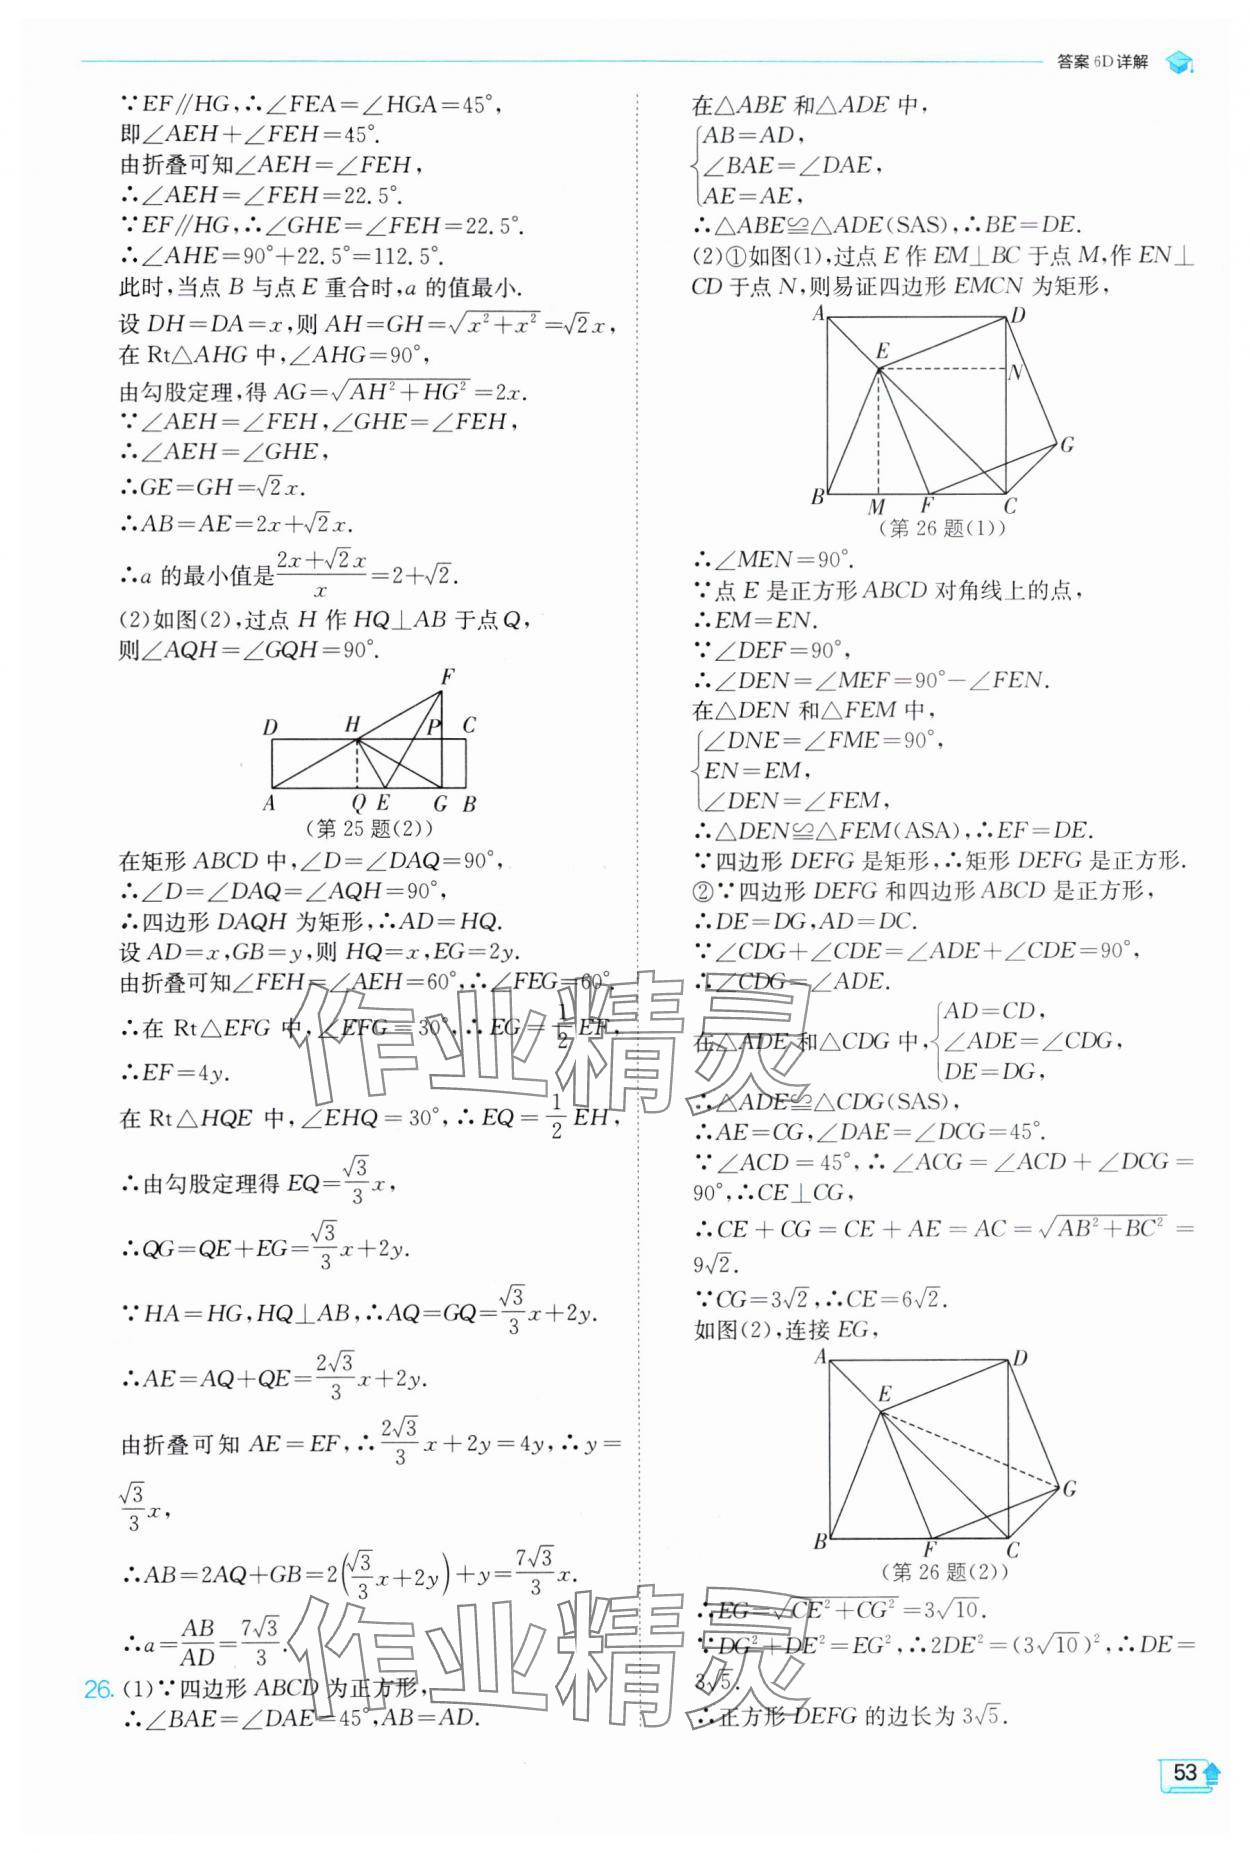 答案 6D 详解
∵EF∥HG,∴∠FEA=∠HGA=45°,
即∠AEH+∠FEH=45°.
由折叠可知∠AEH=∠FEH,
∴∠AEH=∠FEH=22.5°.
∵EF∥HG,∴∠GHE=∠FEH=22.5°.
∴∠AHE=90°+22.5°=112.5°.
此时,当点 B 与点 E 重合时,a 的值最小.
设 DH=DA=x,则 AH=GH=√(x²+x²)=√2x,
在 Rt△AHG 中,∠AHG=90°,
由勾股定理,得 AG=√(AH²+HG²)=2x.
∵∠AEH=∠FEH,∠GHE=∠FEH,
∴∠AEH=∠GHE,
∴GE=GH=√2x.
∴AB=AE=2x+√2x.
∴a 的最小值是(2x+√2x)/x=2+√2.
(2)如图(2),过点 H 作 HQ⊥AB 于点Q,
则∠AQH=∠GQH=90°.
F
D H P C
A Q E G B
(第 25 题(2))
在矩形 ABCD 中,∠D=∠DAQ=90°,
∴∠D=∠DAQ=∠AQH=90°,
∴四边形 DAQH 为矩形,∴AD=HQ.
设 AD=x,GB=y,则 HQ=x,EG=2y.
由折叠可知∠FEH=∠AEH=60°,∴∠FEG=60°.
∴在 Rt△EFG 中,∠EFG=30°,∴EG=1/2 EF,
∴EF=4y.
在 Rt△HQE 中,∠EHQ=30°,∴EQ=1/2 EH,
∴由勾股定理得 EQ=√3/3 x,
∴QG=QE+EG=√3/3 x+2y.
∵HA=HG,HQ⊥AB,∴AQ=GQ=√3/3 x+2y.
∴AE=AQ+QE=2√3/3 x+2y.
由折叠可知 AE=EF,∴2√3/3 x+2y=4y,∴y=
√3/3 x,
∴AB=2AQ+GB=2(√3/3 x+2y)+y=7√3/3 x.
∴a=AB/AD=7√3/3.
26. (1)∵四边形 ABCD 为正方形,
∴∠BAE=∠DAE=45°,AB=AD.
在△ABE 和△ADE 中,
{AB=AD,
∠BAE=∠DAE,
AE=AE,
∴△ABE≌△ADE(SAS),∴BE=DE.
(2)①如图(1),过点 E 作 EM⊥BC 于点 M,作 EN⊥
CD 于点 N,则易证四边形 EMCN 为矩形,
A D
E
N
G
B M F C
(第 26 题(1))
∴∠MEN=90°.
∵点 E 是正方形 ABCD 对角线上的点,
∴EM=EN.
∵∠DEF=90°,
∴∠DEN=∠MEF=90°-∠FEN.
在△DEN 和△FEM 中,
{∠DNE=∠FME=90°,
EN=EM,
∠DEN=∠FEM,
∴△DEN≌△FEM(ASA),∴EF=DE.
∵四边形 DEFG 是矩形,∴矩形 DEFG 是正方形.
②∵四边形 DEFG 和四边形 ABCD 是正方形,
∴DE=DG,AD=DC.
∵∠CDG+∠CDE=∠ADE+∠CDE=90°,
∴∠CDG=∠ADE.
在△ADE 和△CDG 中,{AD=CD,
∠ADE=∠CDG,
DE=DG,
∴△ADE≌△CDG(SAS),
∴AE=CG,∠DAE=∠DCG=45°.
∵∠ACD=45°,∴∠ACG=∠ACD+∠DCG=
90°,∴CE⊥CG,
∴CE+CG=CE+AE=AC=√(AB²+BC²)=
9√2.
∵CG=3√2,∴CE=6√2.
如图(2),连接 EG,
A D
E
G
B F C
(第 26 题(2))
∴EG=√(CE²+CG²)=3√10.
∵DG²+DE²=EG²,∴2DE²=(3√10)²,∴DE=
3√5.
∴正方形 DEFG 的边长为 3√5.
作业精灵
作业精灵
53